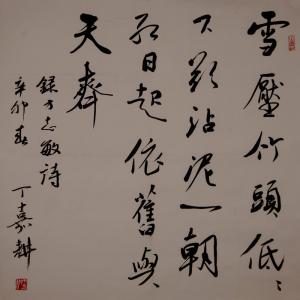 雪壓竹頭低〻
下欲沾泥一朝
紅日起依舊與
天齊
録方志敏詩
辛卯春 丁嘉耕